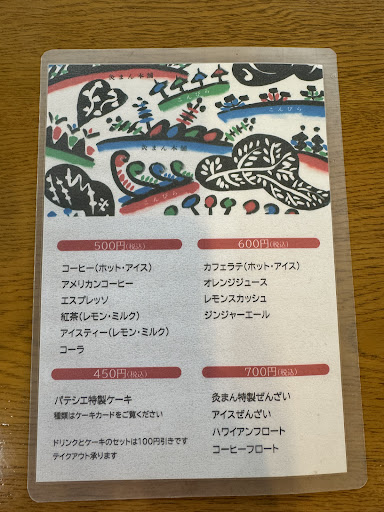 灸まん本舗
さんぴら
こんぴら
灸まん本舗
こんぴら
500円(税込)
コーヒー(ホット・アイス)
アメリカンコーヒー
エスプレッソ
紅茶(レモン・ミルク)
アイスティー(レモン・ミルク)
コーラ
600円(税込)
カフェラテ(ホット・アイス)
オレンジジュース
レモンスカッシュ
ジンジャーエール
450円(税込)
パテシエ特製ケーキ
種類はケーキカードをご覧ください
ドリンクとケーキのセットは100円引きです
テイクアウト承ります
700円(税込)
灸まん特製ぜんざい
アイスぜんざい
ハワイアンフロート
コーヒーフロート